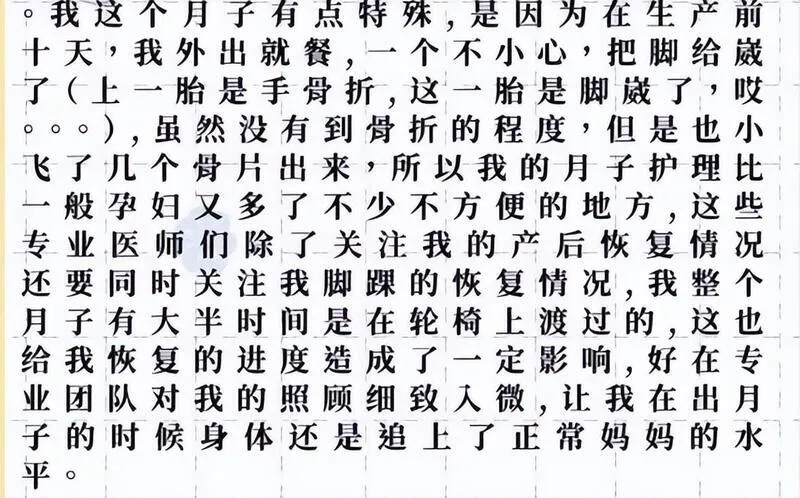 。我这个月子有点特殊,是因为在生产前
十天，我外出就餐,一个不小心，把脚给崴
了(上一胎是手骨折,这一胎是脚崴了，哎
。。。),虽然没有到骨折的程度，但是也小
飞了几个骨片出来，所以我的月子护理比
一般孕妇又多了不少不方便的地方,这些
专业医师们除了关注我的产后恢复情况
还要同时关注我脚踝的恢复情况,我整个
月子有大半时间是在轮椅上渡过的,这也
给我恢复的进度造成了一定影响,好在专
业团队对我的照顾细致入微,让我在出月
子的时候身体还是追上了正常妈妈的水
平。